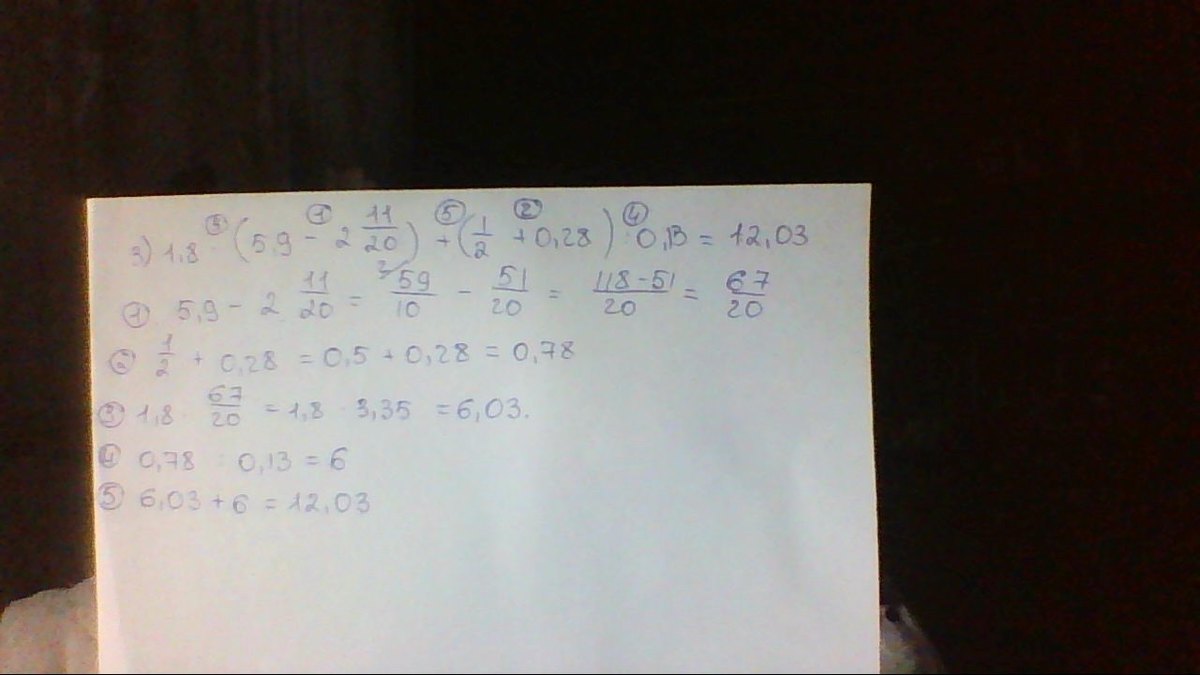 3) 1,8 · ③ (5,9 - ① 2 11/20) + ⑤ (1/2 + ② 0,28) : ④ 0,13 = 12,03
① 5,9 - 2 11/20 = 2/ 59/10 - 51/20 = 118-51/20 = 67/20
② 1/2 + 0,28 = 0,5 + 0,28 = 0,78
③ 1,8 · 67/20 = 1,8 · 3,35 = 6,03.
④ 0,78 : 0,13 = 6
⑤ 6,03 + 6 = 12,03